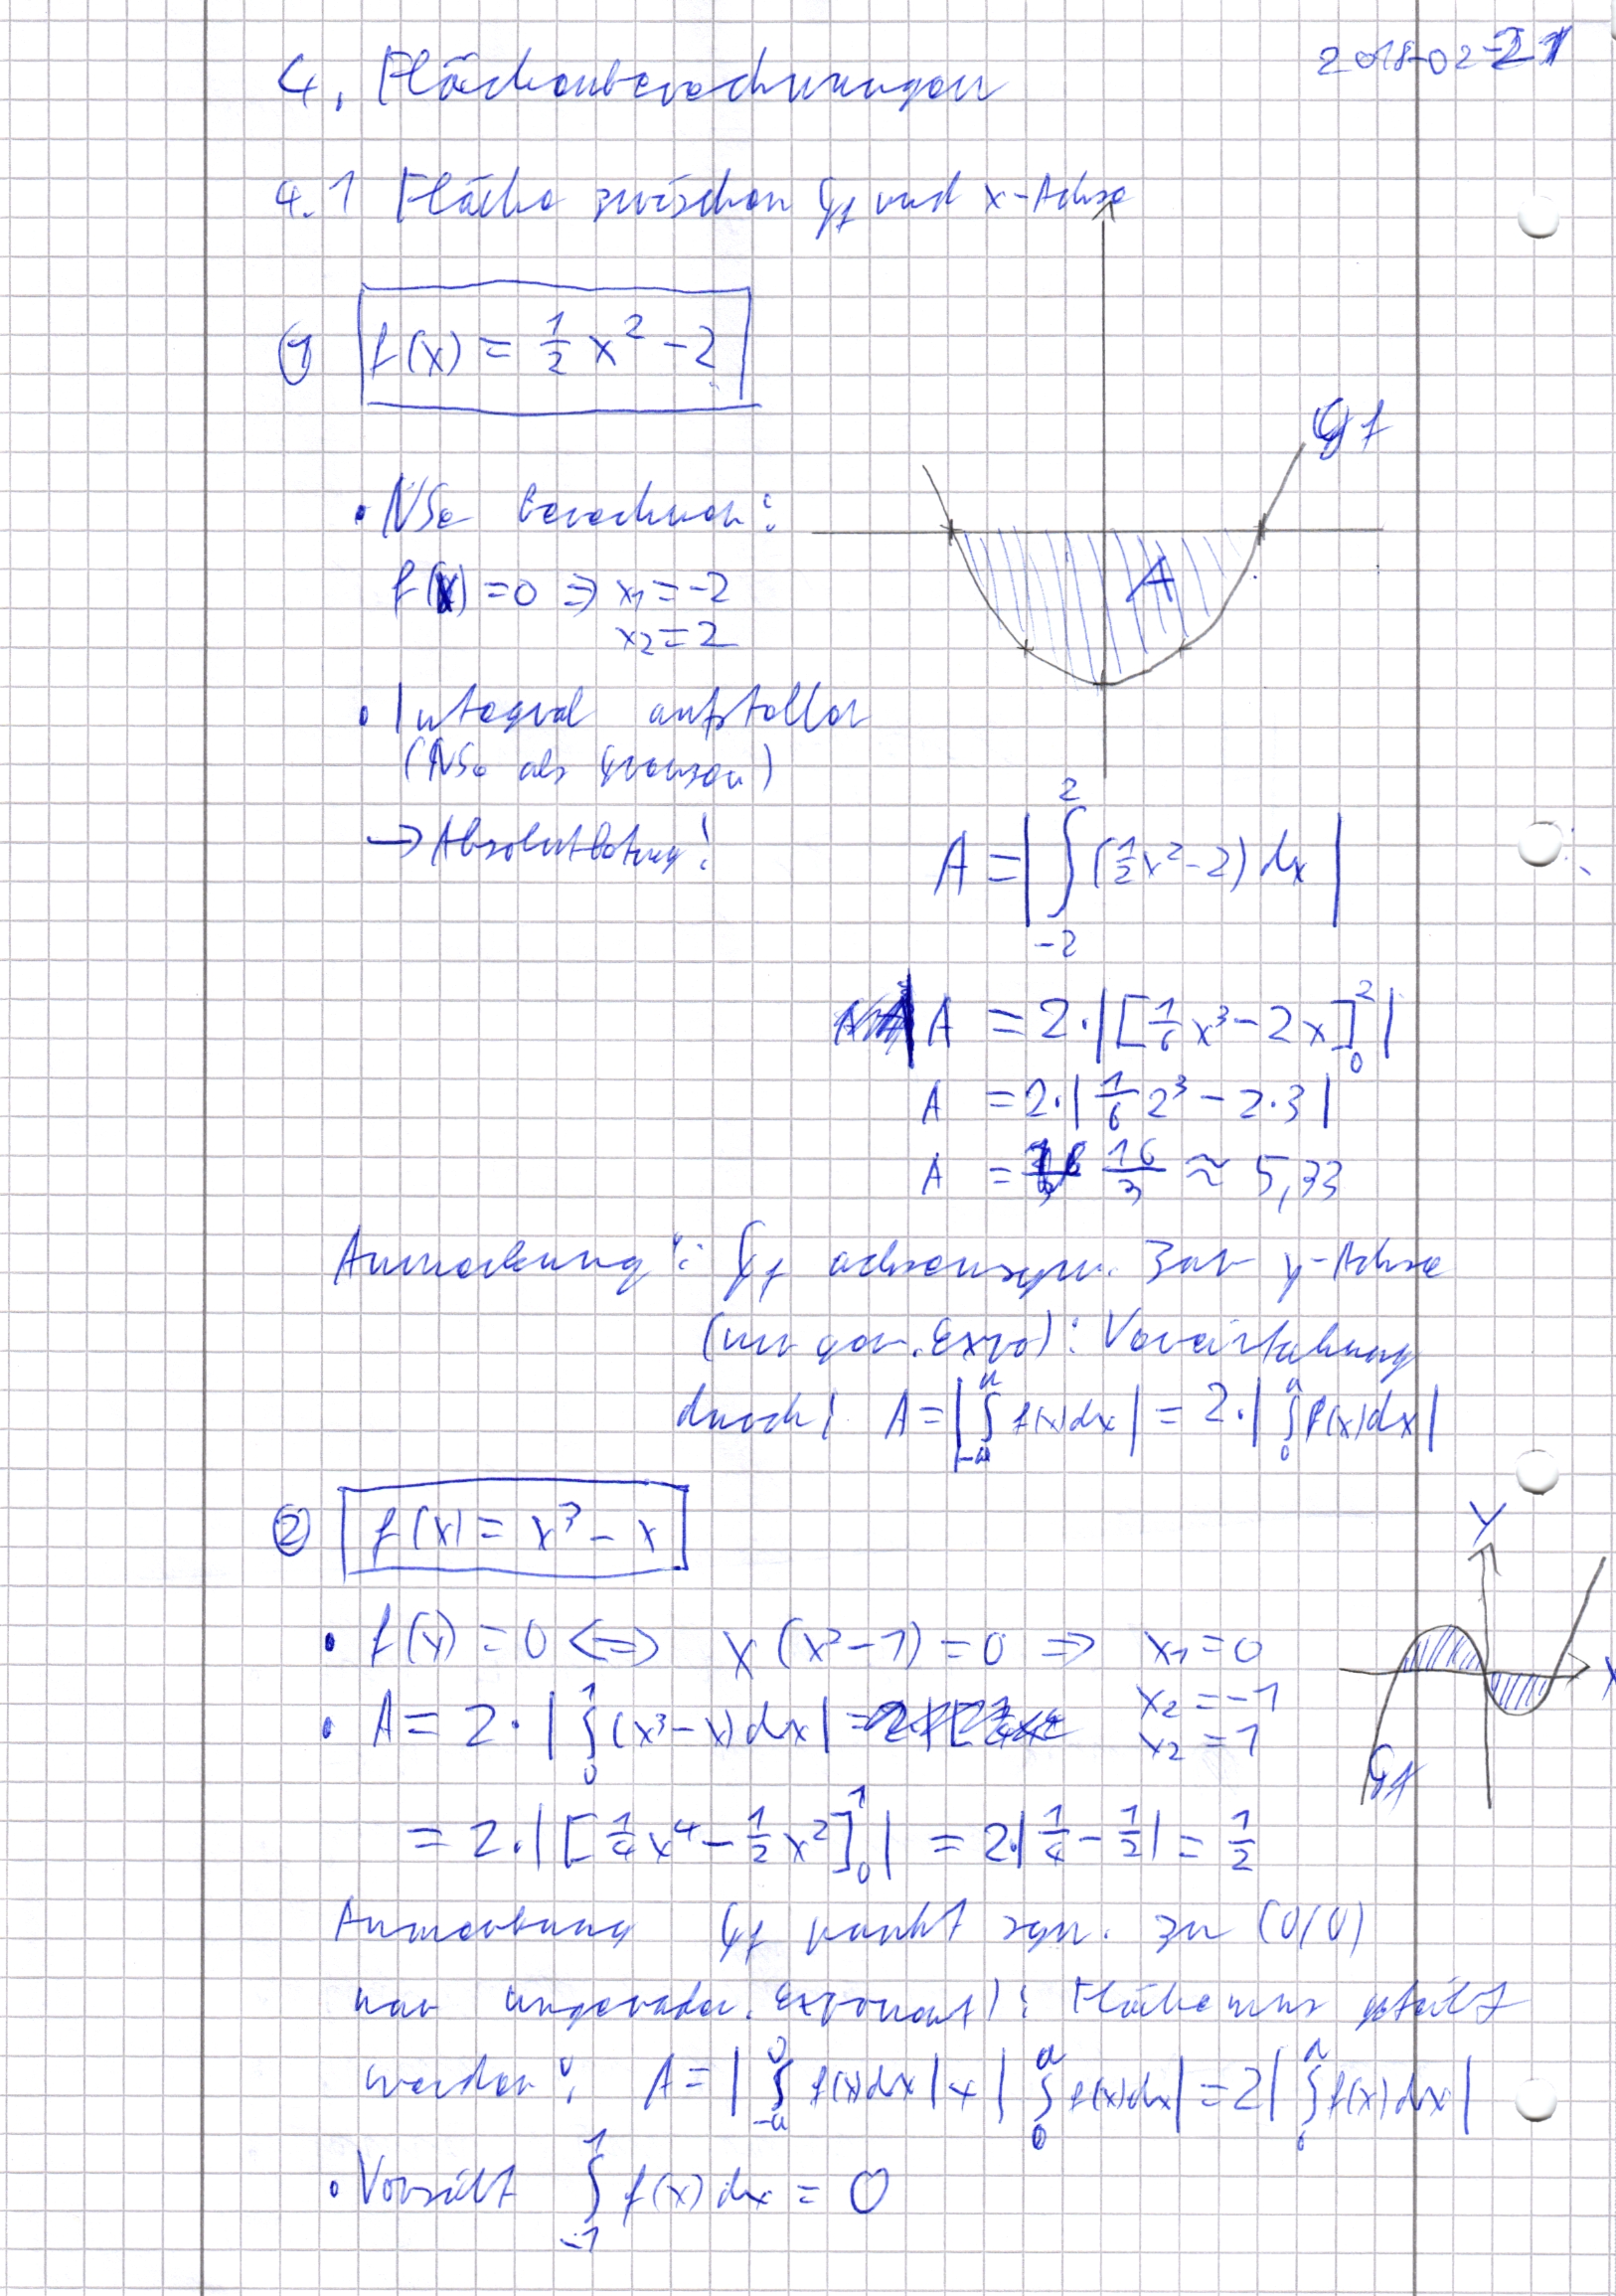 2018-02-21
4. Flächenberechnungen
4.1 Fläche zwischen Gf und x-Achse
① f(x) = 1/2 x² - 2
Gf
• NSe berechnen:
f(x) = 0 ⇒ x₁ = -2
x₂ = 2
A
• Integral aufstellen
(NSe als Grenzen)
→ Absolutbetrag!
A = | ∫_{-2}^{2} (1/2 x² - 2) dx |
A = 2·| [1/6 x³ - 2x]_0^2 |
A = 2·| 1/6 2³ - 2·3 |
A = 16/3 ≈ 5,33
Anmerkung: Gf achsensym. zur y-Achse
(nur ger. Expo): Vereinfachung
durch: A = | ∫_{-a}^{a} f(x) dx | = 2·| ∫_0^a f(x) dx |
② f(x) = x³ - x
Y
X
Gf
• f(x) = 0 ⇔ x (x² - 1) = 0 ⇒ x₁ = 0
x₂ = -1
x₂ = 1
• A = 2·| ∫_0^1 (x³ - x) dx |
= 2·| [1/4 x⁴ - 1/2 x²]_0^1 | = 2·| 1/4 - 1/2 | = 1/2
Anmerkung Gf punkt sym. zu (0/0)
nur ungerader. Exponent): Fläche muss geteilt
werden: A = | ∫_{-a}^0 f(x) dx | + | ∫_0^a f(x) dx | = 2| ∫_0^a f(x) dx |
• Vorsicht ∫_{-1}^1 f(x) dx = 0